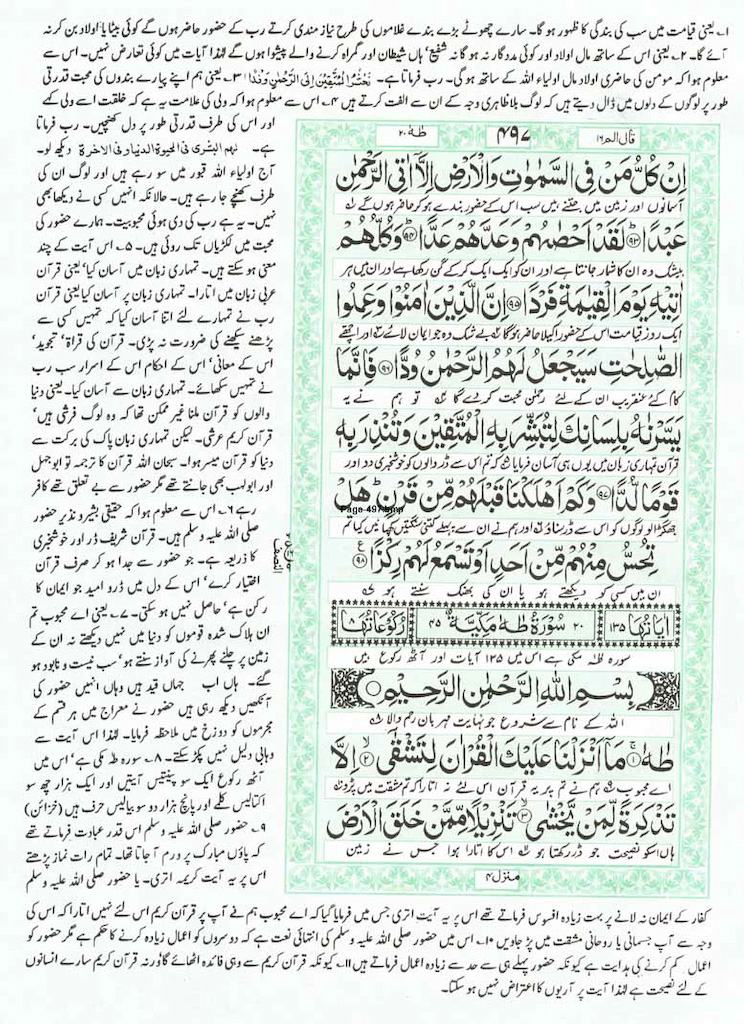 ۱۔ یعنی قیامت میں سب کی بندگی کا ظہور ہو گا۔ سارے چھوٹے بڑے بندے غلاموں کی طرح نیاز مندی کرتے رب کے حضور حاضر ہوں گے کوئی بیٹا یا اولاد بن کر نہ
آئے گا۔ ۲۔ یعنی اس کے ساتھ مال اولاد اور کوئی مددگار نہ ہو گا نہ شفیع' ہاں شیطان اور گمراہ کرنے والے پیشوا ہوں گے لہٰذا آیات میں کوئی تعارض نہیں۔ اس سے
معلوم ہوا کہ مومن کی حاضری اولاد مال اولیاء اللہ کے ساتھ ہو گی۔ رب فرماتا ہے۔ نَحْشُرُ الْمُتَّقِيْنَ اِلَى الرَّحْمٰنِ وَفْدًا ۳۔ یعنی ہم اپنے پیارے بندوں کی محبت قدرتی
طور پر لوگوں کے دلوں میں ڈال دیتے ہیں کہ لوگ بلا ظاہری وجہ کے ان سے الفت کرتے ہیں ۴۔ اس سے معلوم ہوا کہ ولی کی علامت یہ ہے کہ خلقت اسے ولی کہے
اور اس کی طرف قدرتی طور پر دل کھنچیں۔ رب فرماتا
ہے۔ لهم البشرى فى الحيوة الدنيا و فى الاخرة دیکھ لو۔
آج اولیاء اللہ قبور میں سو رہے ہیں اور لوگ ان کی
طرف کھنچے جا رہے ہیں۔ حالانکہ انہیں کسی نے دیکھا بھی
نہیں۔ یہ ہے رب کی دی ہوئی محبوبیت۔ ہمارے حضور کی
محبت میں لکڑیاں تک روئی ہیں۔ ۵۔ اس آیت کے چند
معنی ہو سکتے ہیں۔ تمہاری زبان میں آسان کیا' یعنی قرآن
عربی زبان میں اتارا۔ تمہاری زبان پر آسان کیا یعنی قرآن
رب نے تمہارے لئے اتنا آسان کیا کہ تمہیں کسی سے
پڑھنے سیکھنے کی ضرورت نہ پڑی۔ قرآن کی قراۃ' تجوید'
اس کے معانی' اس کے احکام اس کے اسرار سب رب
نے تمہیں سکھائے۔ تمہاری زبان سے آسان کیا۔ یعنی دنیا
والوں کو قرآن ملنا غیر ممکن تھا کہ وہ لوگ فرشی ہیں'
قرآن کریم عرشی۔ لیکن تمہاری زبان پاک کی برکت سے
دنیا کو قرآن میسر ہوا۔ سبحان اللہ قرآن کا ترجمہ تو ابوجہل
اور ابولہب بھی جانتے تھے مگر حضور سے بے تعلق تھے کافر
رہے ۶۔ اس سے معلوم ہوا کہ حقیقی بشیر و نذیر حضور
صلی اللہ علیہ وسلم ہیں۔ قرآن شریف ڈر اور خوشخبری
کا ذریعہ ہے۔ جو حضور سے جدا ہو کر صرف قرآن
اختیار کرے' اس کے دل میں ڈر و امید جو ایمان کا
رکن ہے' حاصل نہیں ہو سکتی۔ ۷۔ یعنی اے محبوب تم
ان ہلاک شدہ قوموں کو دنیا میں نہیں دیکھتے نہ ان کے
زمین پر چلنے پھرنے کی آواز سنتے ہو' سب نیست و نابود ہو
گئے۔ ہاں اب جہاں قید ہیں وہاں انہیں حضور کی
آنکھیں دیکھ رہی ہیں حضور نے معراج میں ہر قسم کے
مجرموں کو دوزخ میں ملاحظہ فرمایا۔ لہٰذا اس آیت سے
وہابی دلیل نہیں پکڑ سکتے۔ ۸۔ سورہ طٰہٰ مکی ہے' اس میں
آٹھ رکوع ایک سو پینتیس آیتیں اور ایک ہزار چھ سو
اکتالیس کلمے اور پانچ ہزار دو سو بیالیس حرف ہیں (خزائن)
۹۔ حضور صلی اللہ علیہ وسلم اس قدر عبادت فرماتے تھے
کہ پاؤں مبارک پر ورم آ جاتا تھا۔ تمام رات نماز پڑھتے
اس پر یہ آیت کریمہ اتری۔ یا حضور صلی اللہ علیہ وسلم
قال الم ۱۶
۴۹۷
طٰهٰ ۲۰
اِنْ كُلُّ مَنْ فِى السَّمٰوٰتِ وَالْاَرْضِ اِلَّاۤ اٰتِى الرَّحْمٰنِ
آسمانوں اور زمین میں جتنے ہیں سب اس کے حضور بندے ہو کر حاضر ہوں گے ۱
عَبْدًا ﴿۹۳﴾ لَقَدْ اَحْصٰىهُمْ وَعَدَّهُمْ عَدًّا ﴿۹۴﴾ وَكُلُّهُمْ
بیشک وہ ان کا شمار جانتا ہے اور ان کو ایک ایک کر کے گن رکھا ہے اور ان میں ہر
اٰتِيْهِ يَوْمَ الْقِيٰمَةِ فَرْدًا ﴿۹۵﴾ اِنَّ الَّذِيْنَ اٰمَنُوْا وَعَمِلُوا
ایک روز قیامت اس کے حضور اکیلا حاضر ہو گا ۲ بے شک وہ جو ایمان لائے اور اچھے
الصّٰلِحٰتِ سَيَجْعَلُ لَهُمُ الرَّحْمٰنُ وُدًّا ﴿۹۶﴾ فَاِنَّمَا
کام کئے عنقریب ان کے لئے رحمٰن محبت کر دے گا ۴ تو ہم نے یہ
يَسَّرْنٰهُ بِلِسَانِكَ لِتُبَشِّرَ بِهِ الْمُتَّقِيْنَ وَتُنْذِرَ بِهٖ
قرآن تمہاری زبان میں یوں ہی آسان فرمایا ۵ کہ تم اس سے ڈر والوں کو خوشخبری دو اور
قَوْمًا لُّدًّا ﴿۹۷﴾ وَكَمْ اَهْلَكْنَا قَبْلَهُمْ مِّنْ قَرْنٍ هَلْ
Page 497.bmp
جھگڑالو لوگوں کو اس سے ڈر سناؤ ۶ اور ہم نے ان سے پہلے کتنی سنگتیں کھپائیں کیا تم
تُحِسُّ مِنْهُمْ مِّنْ اَحَدٍ اَوْ تَسْمَعُ لَهُمْ رِكْزًا ﴿۹۸﴾
ان میں کسی کو دیکھتے ہو یا ان کی بھنک سنتے ہو ۷
اٰيَاتُهَا ۱۳۵
۲۰ سُوْرَةُ طٰهٰ مَكِّيَّةٌ ۴۵
رُكُوْعَاتُهَا ۸
سورہ طٰہٰ مکی ہے اس میں ۱۳۵ آیات اور آٹھ رکوع ہیں
بِسْمِ اللّٰهِ الرَّحْمٰنِ الرَّحِيْمِ
اللہ کے نام سے شروع جو نہایت مہربان رحم والا ۸
طٰهٰ ﴿۱﴾ مَاۤ اَنْزَلْنَا عَلَيْكَ الْقُرْاٰنَ لِتَشْقٰۤى ﴿۲﴾ اِلَّا
اے محبوب ہم نے تم پر یہ قرآن اس لئے نہ اتارا کہ تم مشقت میں پڑو ۹
تَذْكِرَةً لِّمَنْ يَّخْشٰى ﴿۳﴾ تَنْزِيْلًا مِّمَّنْ خَلَقَ الْاَرْضَ
ہاں اسکو نصیحت جو ڈر رکھتا ہو اس کا اتارا ہوا جس نے زمین
منزل ۴
النصف
کفار کے ایمان نہ لانے پر بہت زیادہ افسوس فرماتے تھے اس پر یہ آیت اتری جس میں فرمایا گیا کہ اے محبوب ہم نے آپ پر قرآن کریم اس لئے نہیں اتارا کہ اس کی
وجہ سے آپ جسمانی یا روحانی مشقت میں پڑ جاویں ۱۰۔ اس میں حضور صلی اللہ علیہ وسلم کی انتہائی نعت ہے کہ دوسروں کو اعمال زیادہ کرنے کا حکم ہے مگر حضور کو
اعمال کم کرنے کی ہدایت ہے کیونکہ حضور پہلے ہی سے حد سے زیادہ اعمال فرماتے ہیں ۱۱۔ کیونکہ قرآن کریم سے وہی فائدہ اٹھائے گا ورنہ قرآن کریم سارے انسانوں
کے لئے نصیحت ہے لہٰذا آیت پر آریوں کا اعتراض نہیں ہو سکتا۔